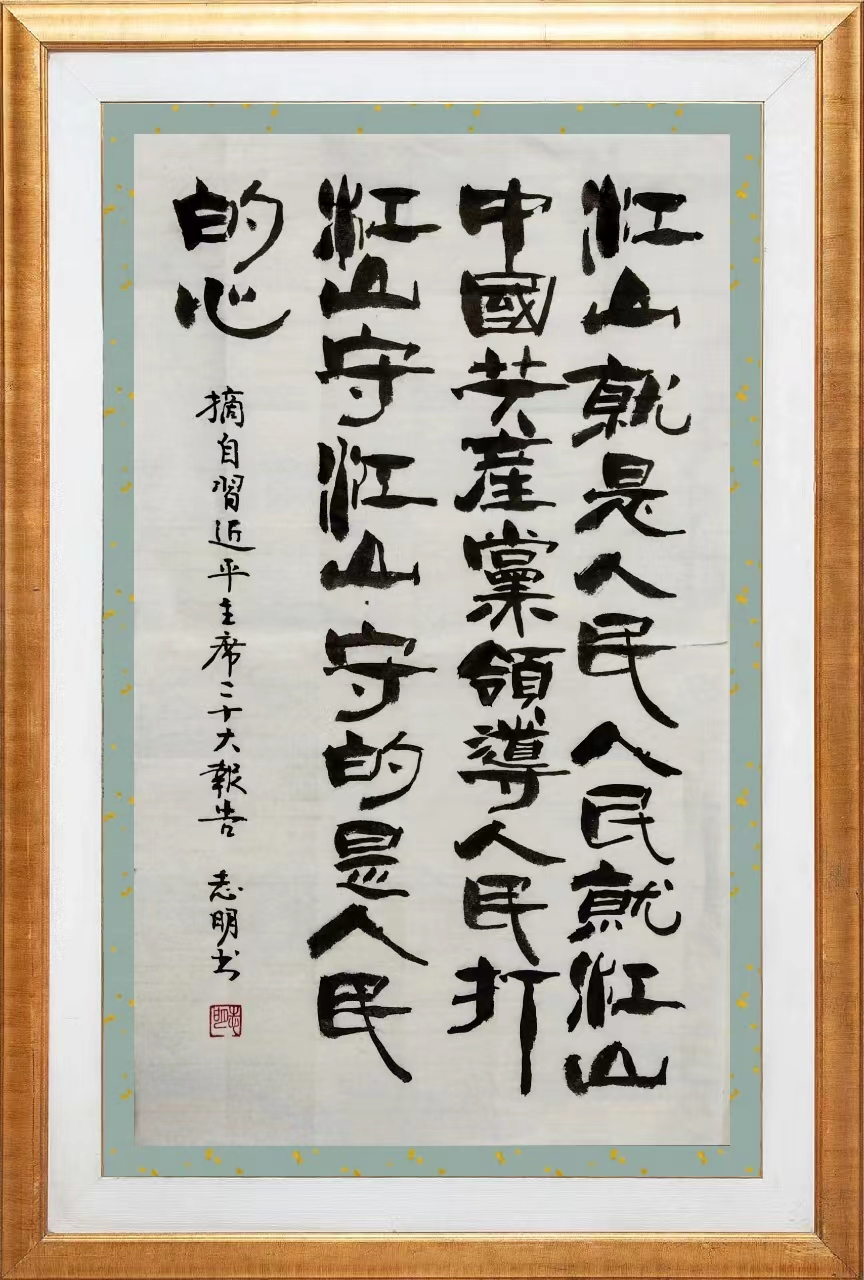 江山就是人民人民就江山
中國共產黨領導人民打
江山守江山守的是人民
的心
摘自習近平主席二十大報告 志明書
志明